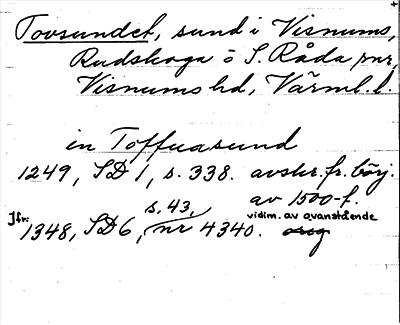 Tovsundet, sund i Visnums,
Rudskoga o S. Råda snr,
Visnums hd, Värml. l.
in Toffuasund
1249, SD 1, s. 338. avskr. fr. börj.
av 1500-t.
s. 43, vidim. av ovanstående
Jfr 1348, SD 6, nr 4340. orig